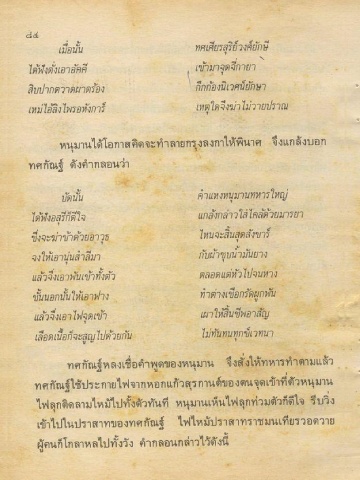 ๘๔
เมื่อนั้น ทศเศียรสุริย์วงศ์ยักษี
ได้ฟังดั่งเอาอัคคี เข้ามาจุดจี่กายา
สิบปากตวาดผาดร้อง ลึกก้องนิเวศน์ยักษา
เหม่ไอ้ลิงไพรอหังการ์ เหตุใดจึงฆ่าไม่วายปราณ
หนุมานได้โอกาสคิดจะทำลายกรุงลงกาให้พินาศ จึงแกล้งบอก
ทศกัณฐ์ ดังคำกลอนว่า
บัดนั้น คำแหงหนุมานทหารใหญ่
ได้ฟังอสุรีก็ดีใจ แกล้งกล่าวใส่ไคล้ด้วยมารยา
ซึ่งจะฆ่าข้าด้วยอาวุธ ไหนจะสิ้นสุดสังขาร์
จงให้เอานุ่นสำลีมา กับผ้าชุบน้ำมันยาง
แล้วจึ่งเอาพันเข้าทั้งตัว ตลอดแต่หัวไปจนหาง
ชั้นนอกนั้นให้เอาฟาง ทำต่างเชือกรัดผูกพัน
แล้วจึ่งเอาไฟจุดเข้า เผาให้สิ้นชีพอาสัญ
เลือดเนื้อก็จะสูญไปด้วยกัน ไม่ทันทนทุกข์เวทนา
ทศกัณฐ์หลงเชื่อคำพูดของหนุมาน จึงสั่งให้ทหารทำตามแล้ว
ทศกัณฐ์ใช้ประกายไฟจากหอกแก้วสุรกานต์ของตนจุดเข้าที่ตัวหนุมาน
ไฟลุกติดลามไหม้ไปทั้งตัวทันที หนุมานเห็นไฟลุกท่วมตัวก็ดีใจ รีบวิ่ง
เข้าไปในปราสาทของทศกัณฐ์ ไฟไหม้ปราสาทราชมนเทียรวอดวาย
ผู้คนก็โกลาหลไปทั้งวัง คำกลอนกล่าวไว้ดังนี้